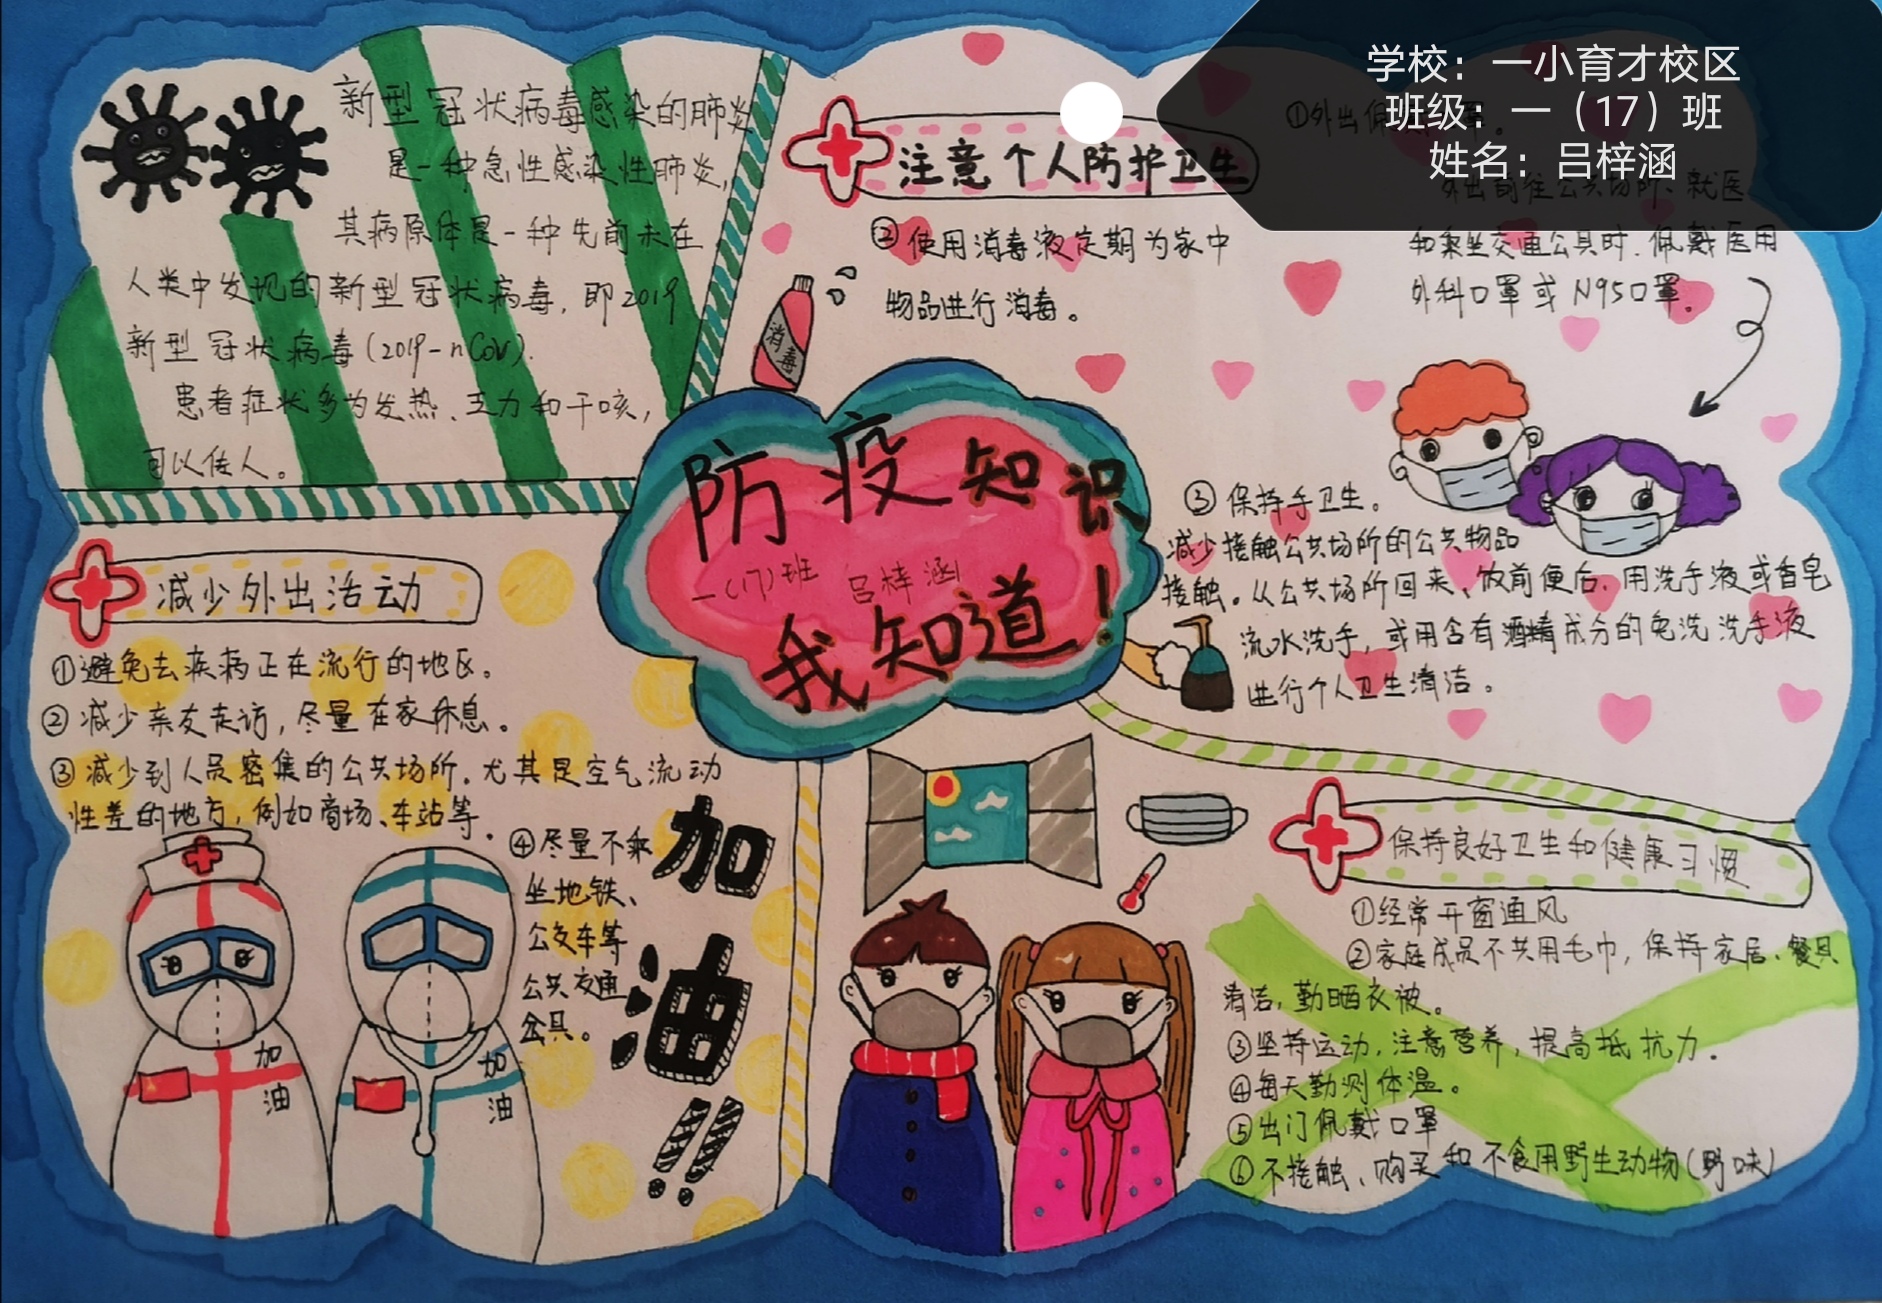 学校：一小育才校区
班级：一（17）班
姓名：吕梓涵
新型冠状病毒感染的肺炎
是一种急性感染性肺炎，
其病原体是一种先前未在
人类中发现的新型冠状病毒，即2019
新型冠状病毒(2019-nCoV).
患者症状多为发热、乏力和干咳，
可以传人。
注意个人防护卫生
①外出佩
外出前往公共场所、就医
和乘坐交通公具时.佩戴医用
外科口罩或N95口罩。
②使用消毒液定期为家中
物品进行消毒。
消毒
③保持手卫生。
减少接触公共场所的公共物品
接触。从公共场所回来、饭前便后.用洗手液或香皂
流水洗手，或用含有酒精成分的免洗洗手液
进行个人卫生清洁。
防疫知识
一(17)班 吕梓涵
我知道！
减少外出活动
①避免去疾病正在流行的地区。
②减少亲友走访，尽量在家休息。
③减少到人员密集的公共场所.尤其是空气流动
性差的地方，例如商场、车站等.
④尽量不乘
坐地铁、
公交车等
公共交通
公具。
加油!!
加油
加油
保持良好卫生和健康习惯
①经常开窗通风
②家庭成员不共用毛巾，保持家居、餐具
清洁，勤晒衣被。
③坚持运动，注意营养，提高抵抗力.
④每天勤测体温。
⑤出门佩戴口罩
⑥不接触、购买和不食用野生动物(野味)